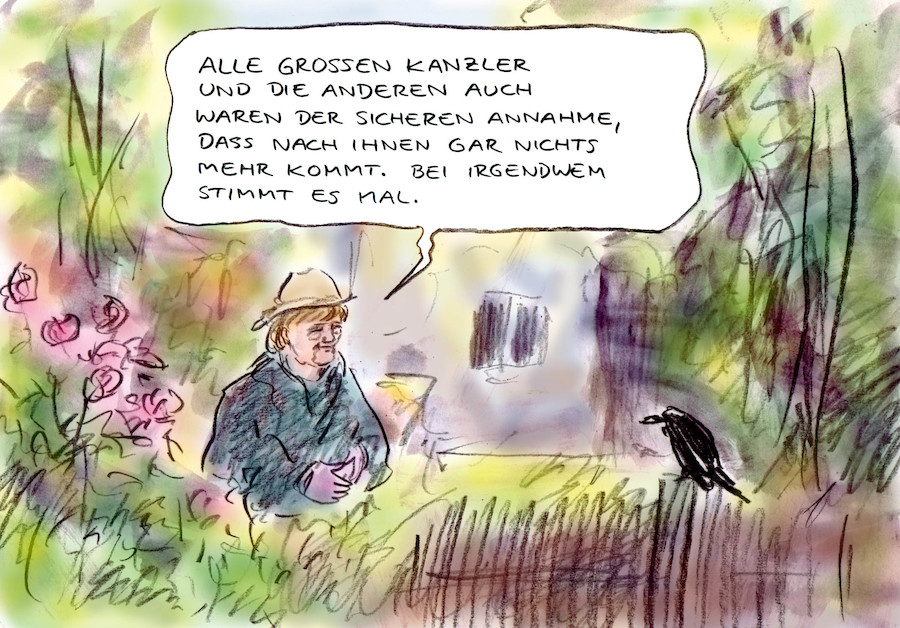 ALLE GROSSEN KANZLER
UND DIE ANDEREN AUCH
WAREN DER SICHEREN ANNAHME,
DASS NACH IHNEN GAR NICHTS
MEHR KOMMT. BEI IRGENDWEM
STIMMT ES MAL.